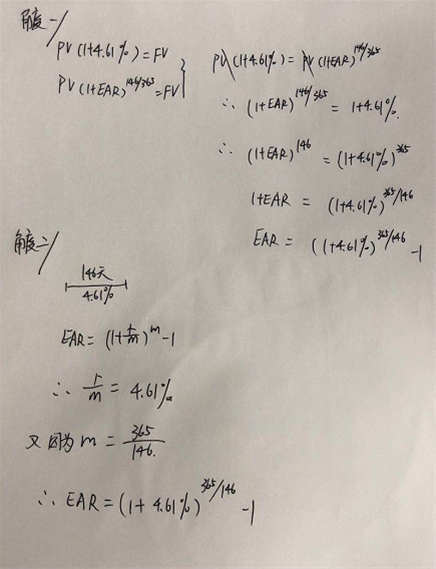 角度一/
PV(1+4.61%)=FV
PV(1+EAR)^146/365=FV
PV(1+4.61%)=PV(1+EAR)^146/365
∴ (1+EAR)^146/365 = 1+4.61%.
∴ (1+EAR)^146 = (1+4.61%)^365
1+EAR = (1+4.61%)^365/146
EAR = ((1+4.61%)^365/146 -1
角度二/
146天
4.61%
EAR= (1+r/m)^m -1
∴ r/m = 4.61%
又因为 m = 365/146.
∴ EAR=(1+4.61%)^365/146 -1